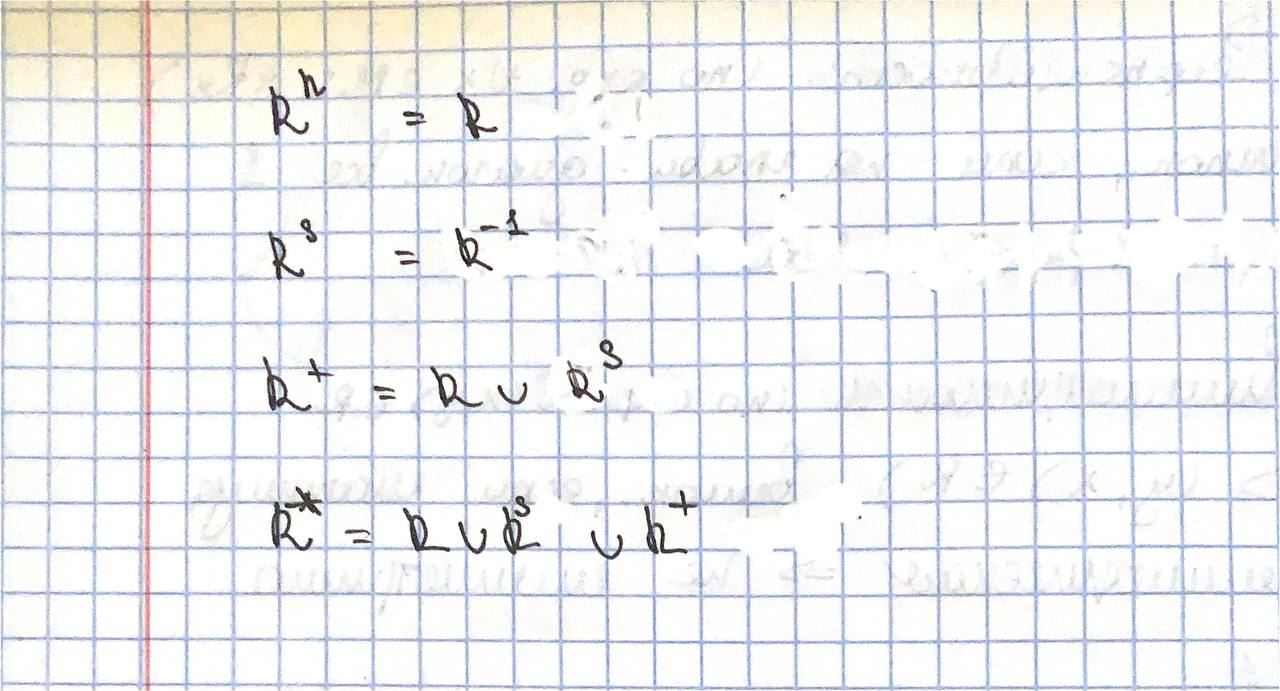 Rⁿ = R
Rˢ = R⁻¹
R⁺ = R ∪ Rˢ
R* = R ∪ Rˢ ∪ R⁺